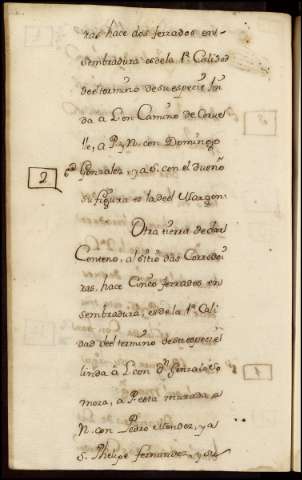 ras, hace dos ferrados en
sembradura es de la 1ª Calidad
de el termino de su especie lin
da a L. con Camino de
lle, a P. y N. con Domingo
Gonzalez, y a S. con el dueño
2
su figura es la del Margen
Otra tierra de dar
Centeno, a sitio das
ras, hace Cinco ferrados en
sembradura, es de la 1ª Cali
dad de el termino de su especie
linda a L. con Dⁿ Gonzalo
mora, a P. esta murada a
N. con Pedro Mendez, y a
S. Phelipe Fernandez, y su